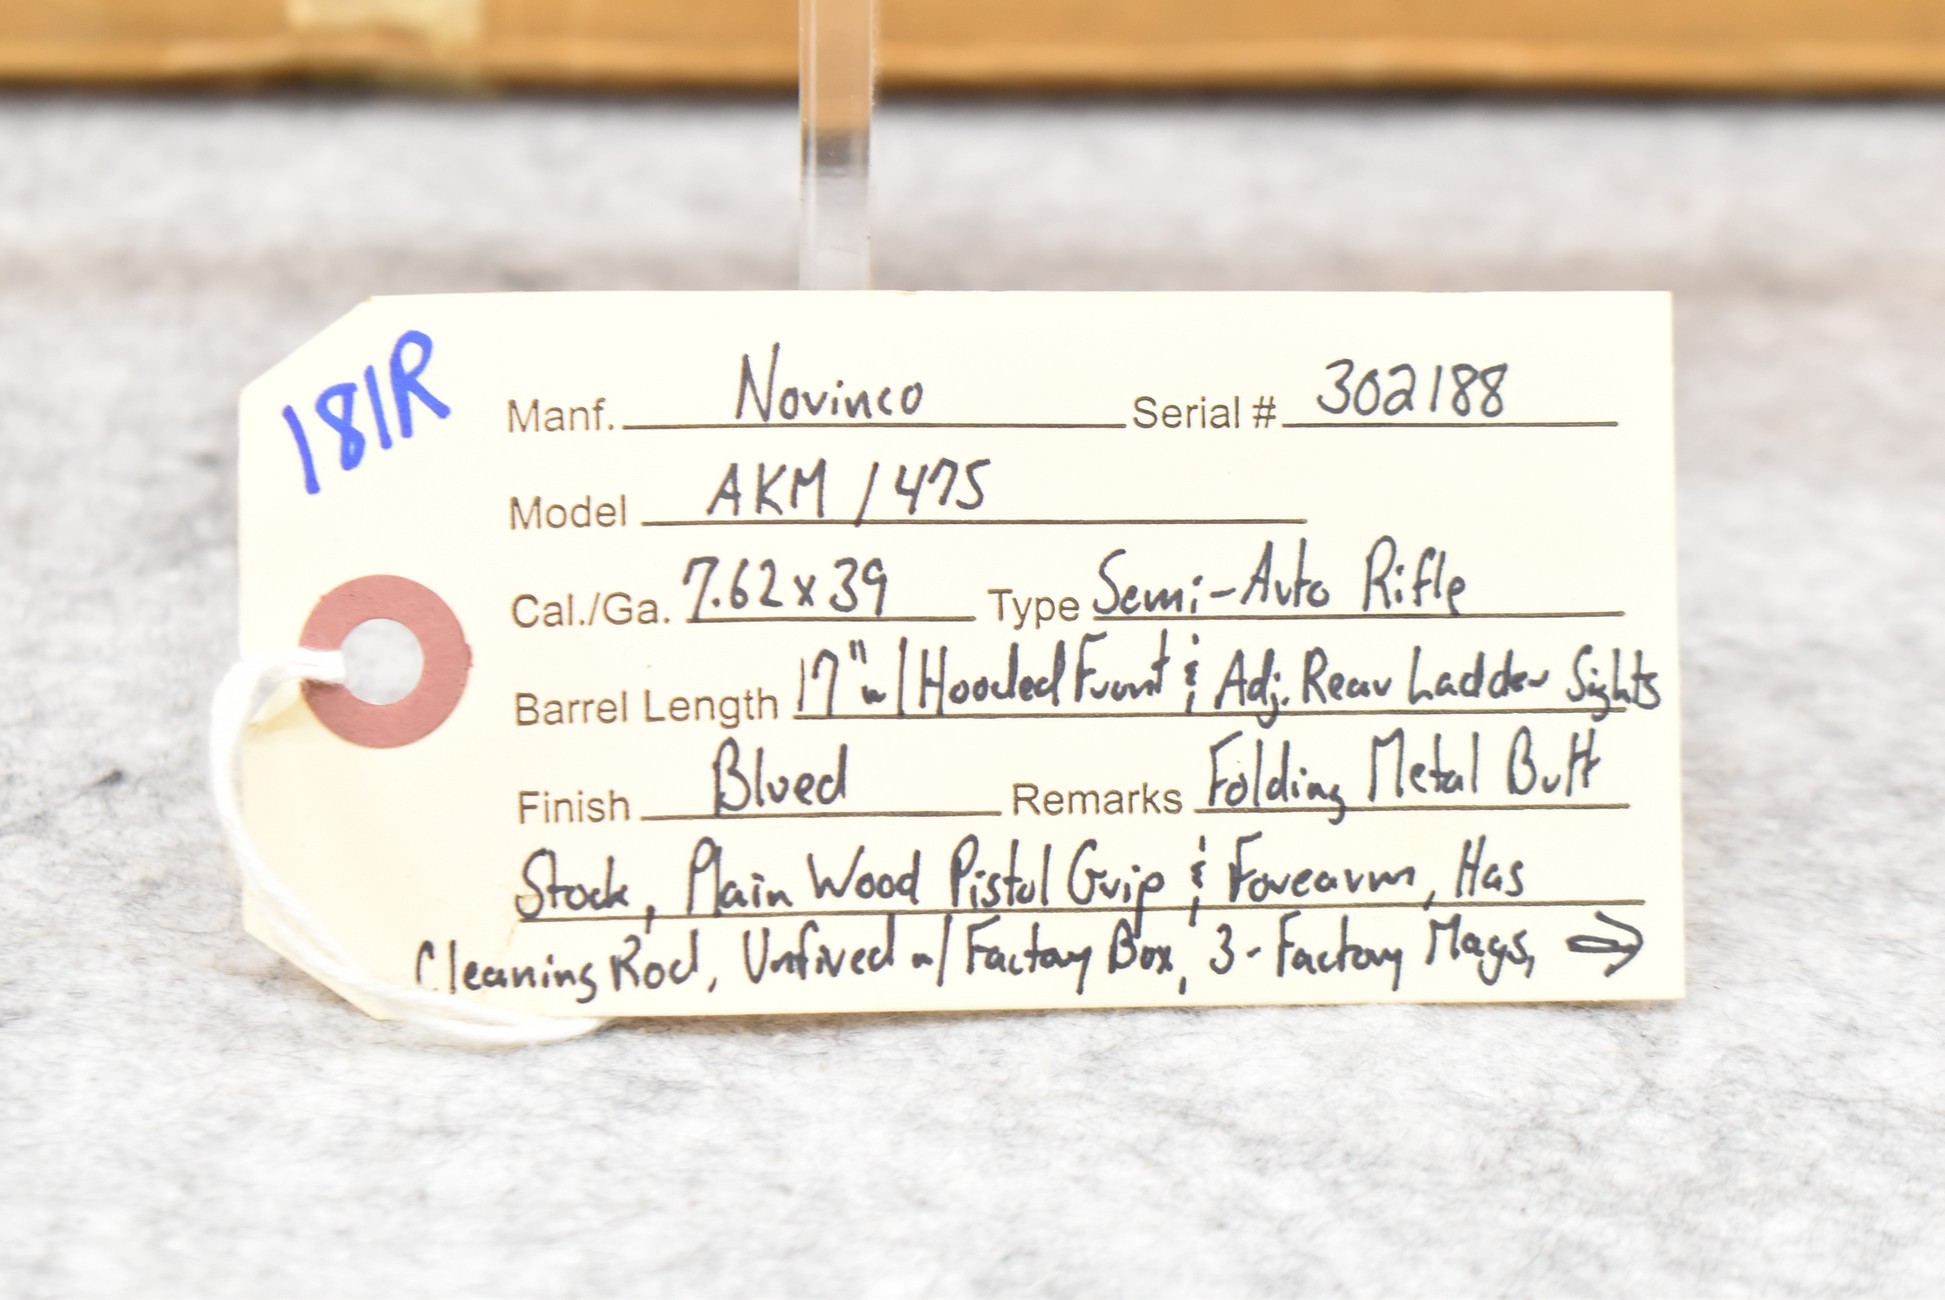 181R
Manf. Novinco Serial # 302188
Model AKM / 47S
Cal./Ga. 7.62 x 39 Type Semi-Auto Rifle
Barrel Length 17" w/ Hooded Front & Adj. Rear Ladder Sights
Finish Blued Remarks Folding Metal Butt
Stock, Plain Wood Pistol Grip & Forearm, Has
Cleaning Rod, Unfired w/ Factory Box, 3-Factory Mags, →